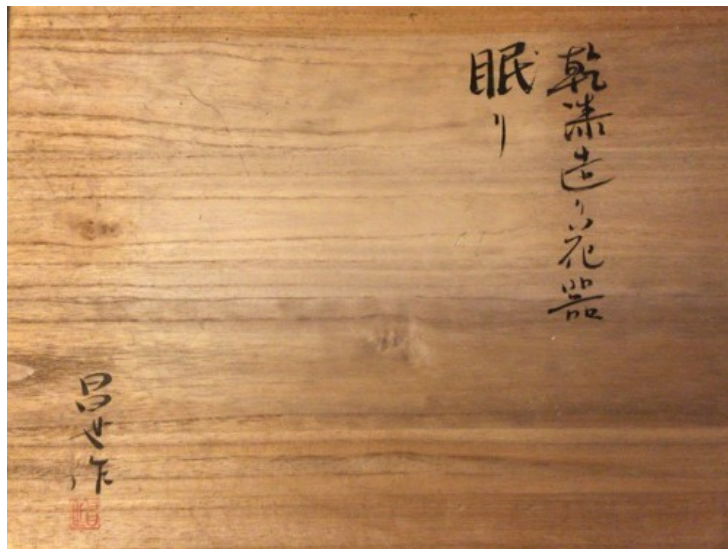 乾漆造り花器
眠り
昌世作